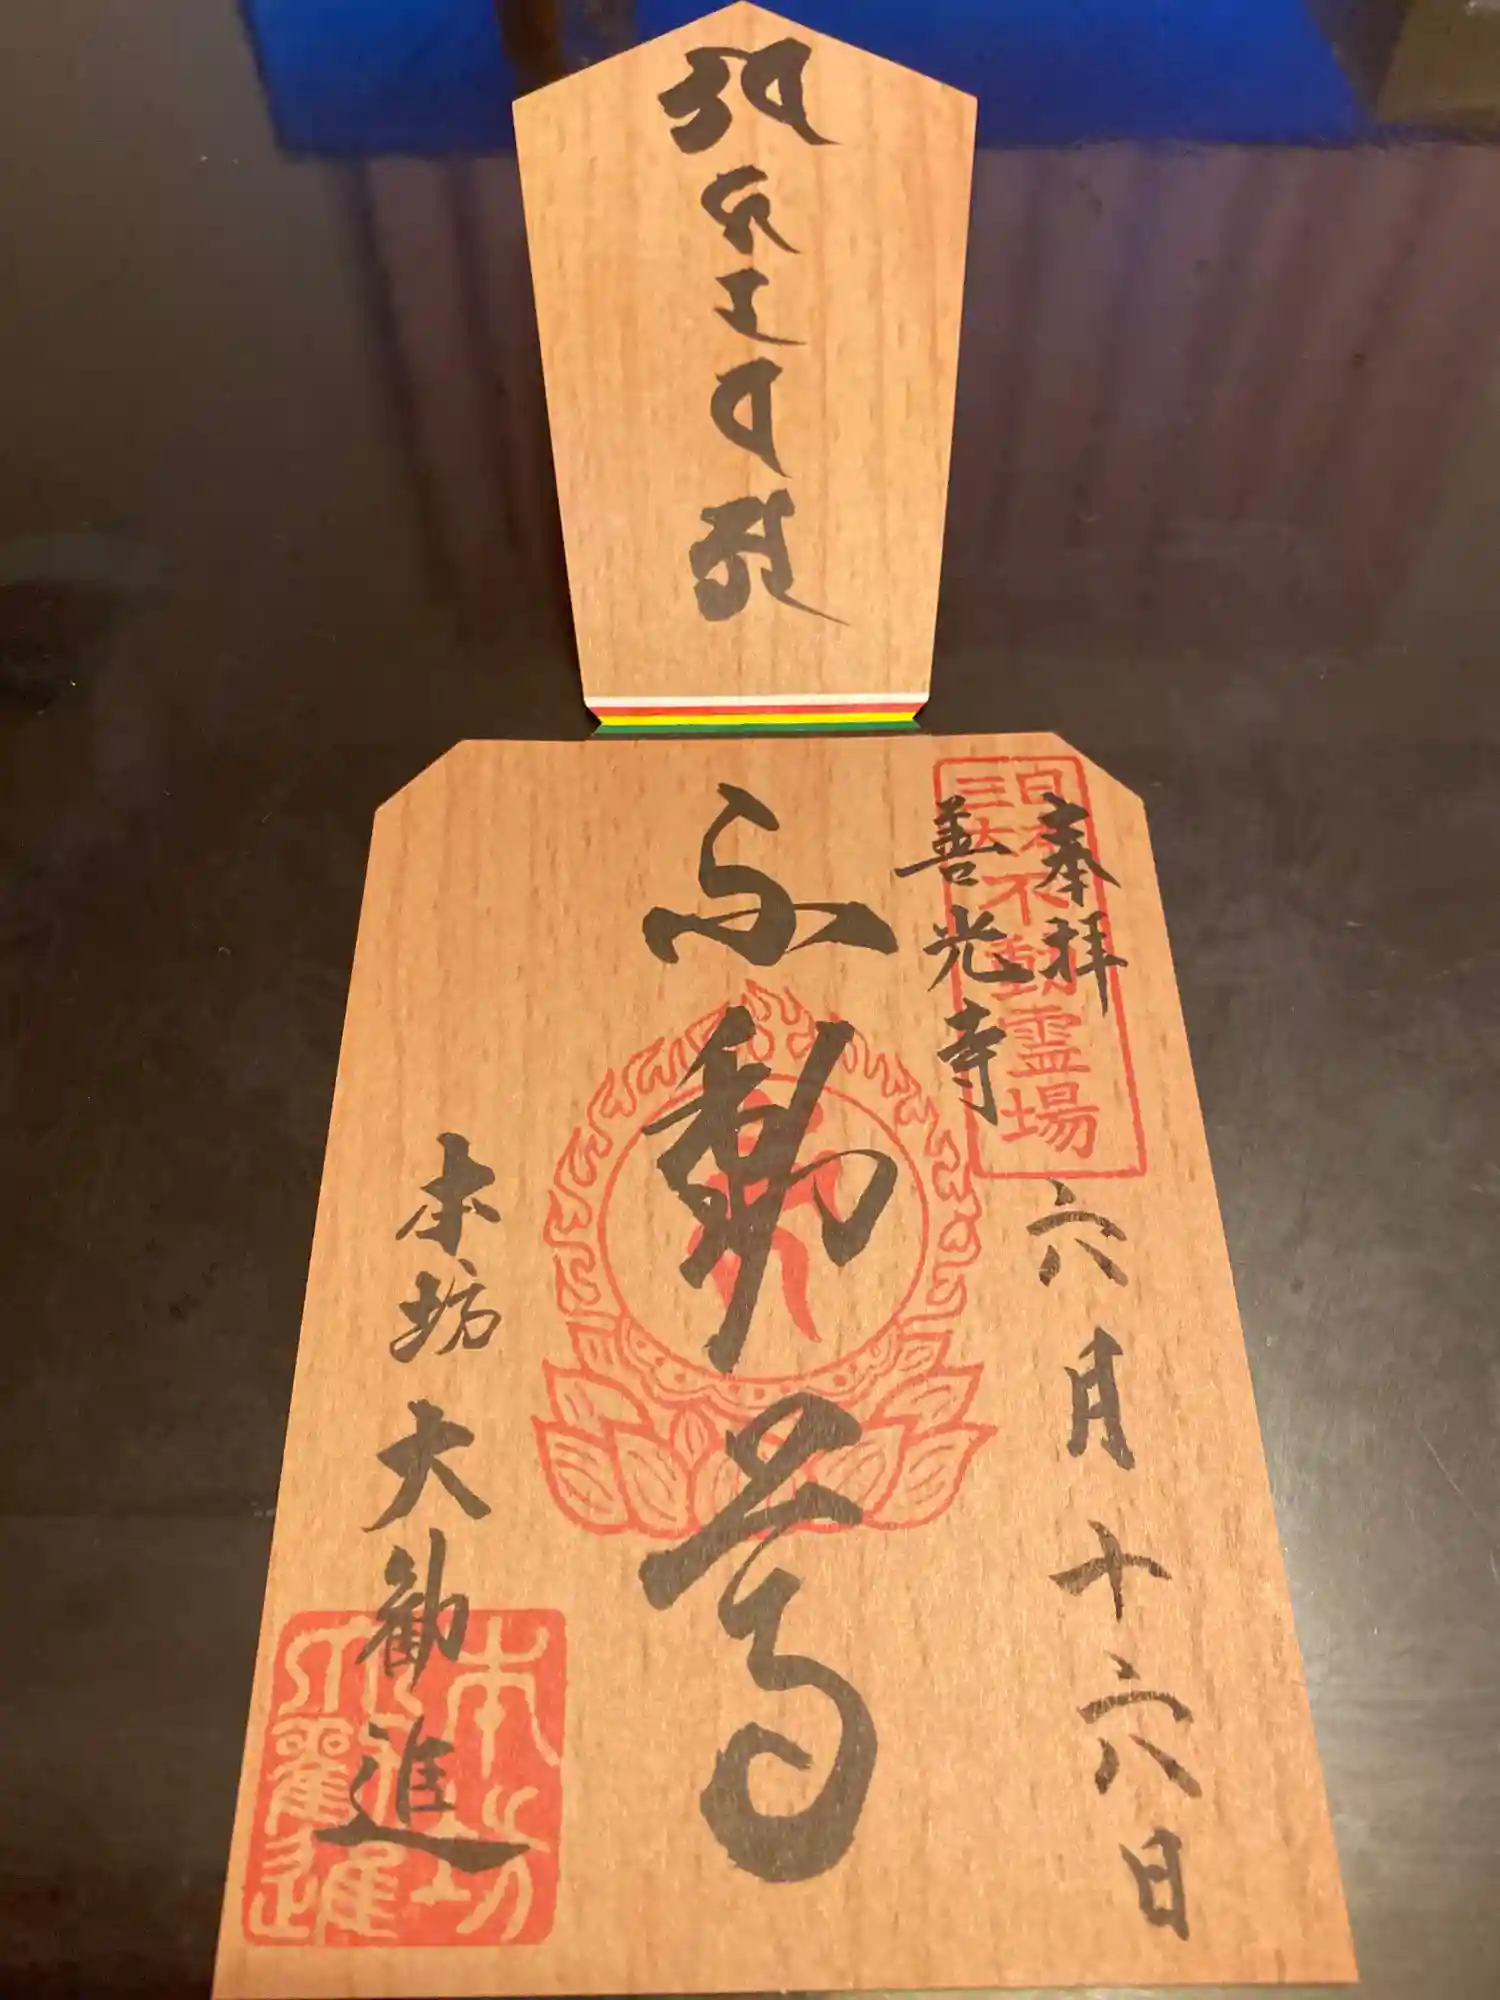 奉拝
六月十六日
善光寺
日本
三大
不動霊場
不動尊
本坊大勧進
本坊
大勸進